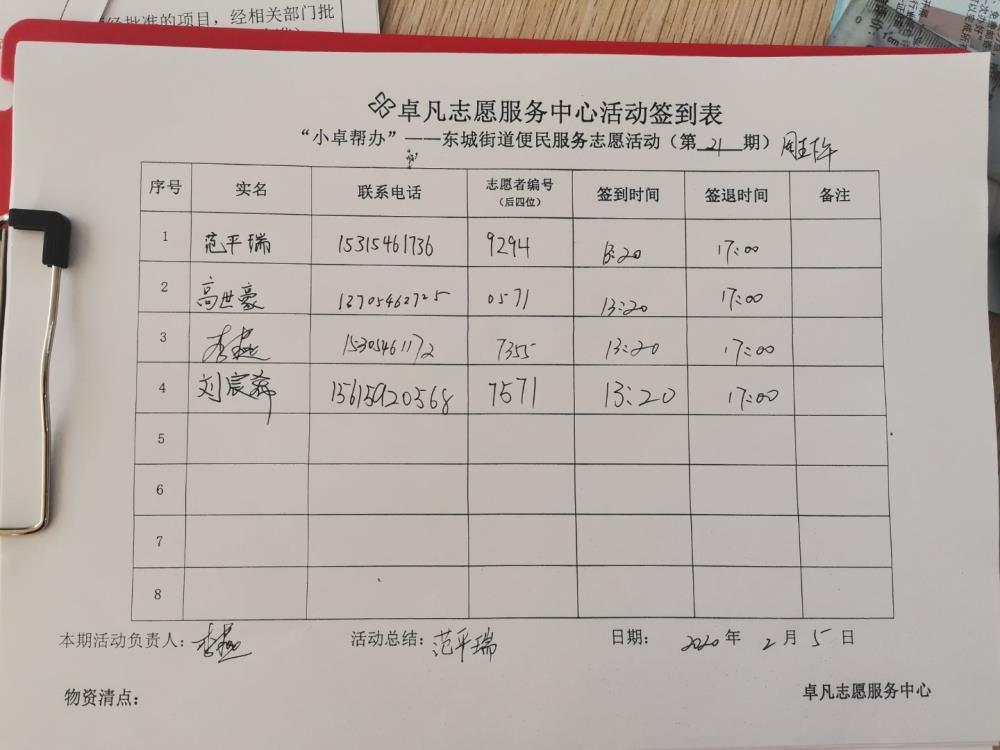 经批准的项目，经相关部门批
卓凡志愿服务中心活动签到表
“小卓帮办”——东城街道便民服务志愿活动（第 21 期）周五下午
序号 实名 联系电话 志愿者编号（后四位） 签到时间 签退时间 备注
1 范平瑞 15315461736 9294 13:20 17:00
2 高世豪 13705462725 0571 13:20 17:00
3 李燕 15305461172 7355 13:20 17:00
4 刘宸 15615920568 7571 13:20 17:00
5
6
7
8
本期活动负责人：李燕 活动总结：范平瑞 日期： 2020 年 2 月 5 日
物资清点： 卓凡志愿服务中心